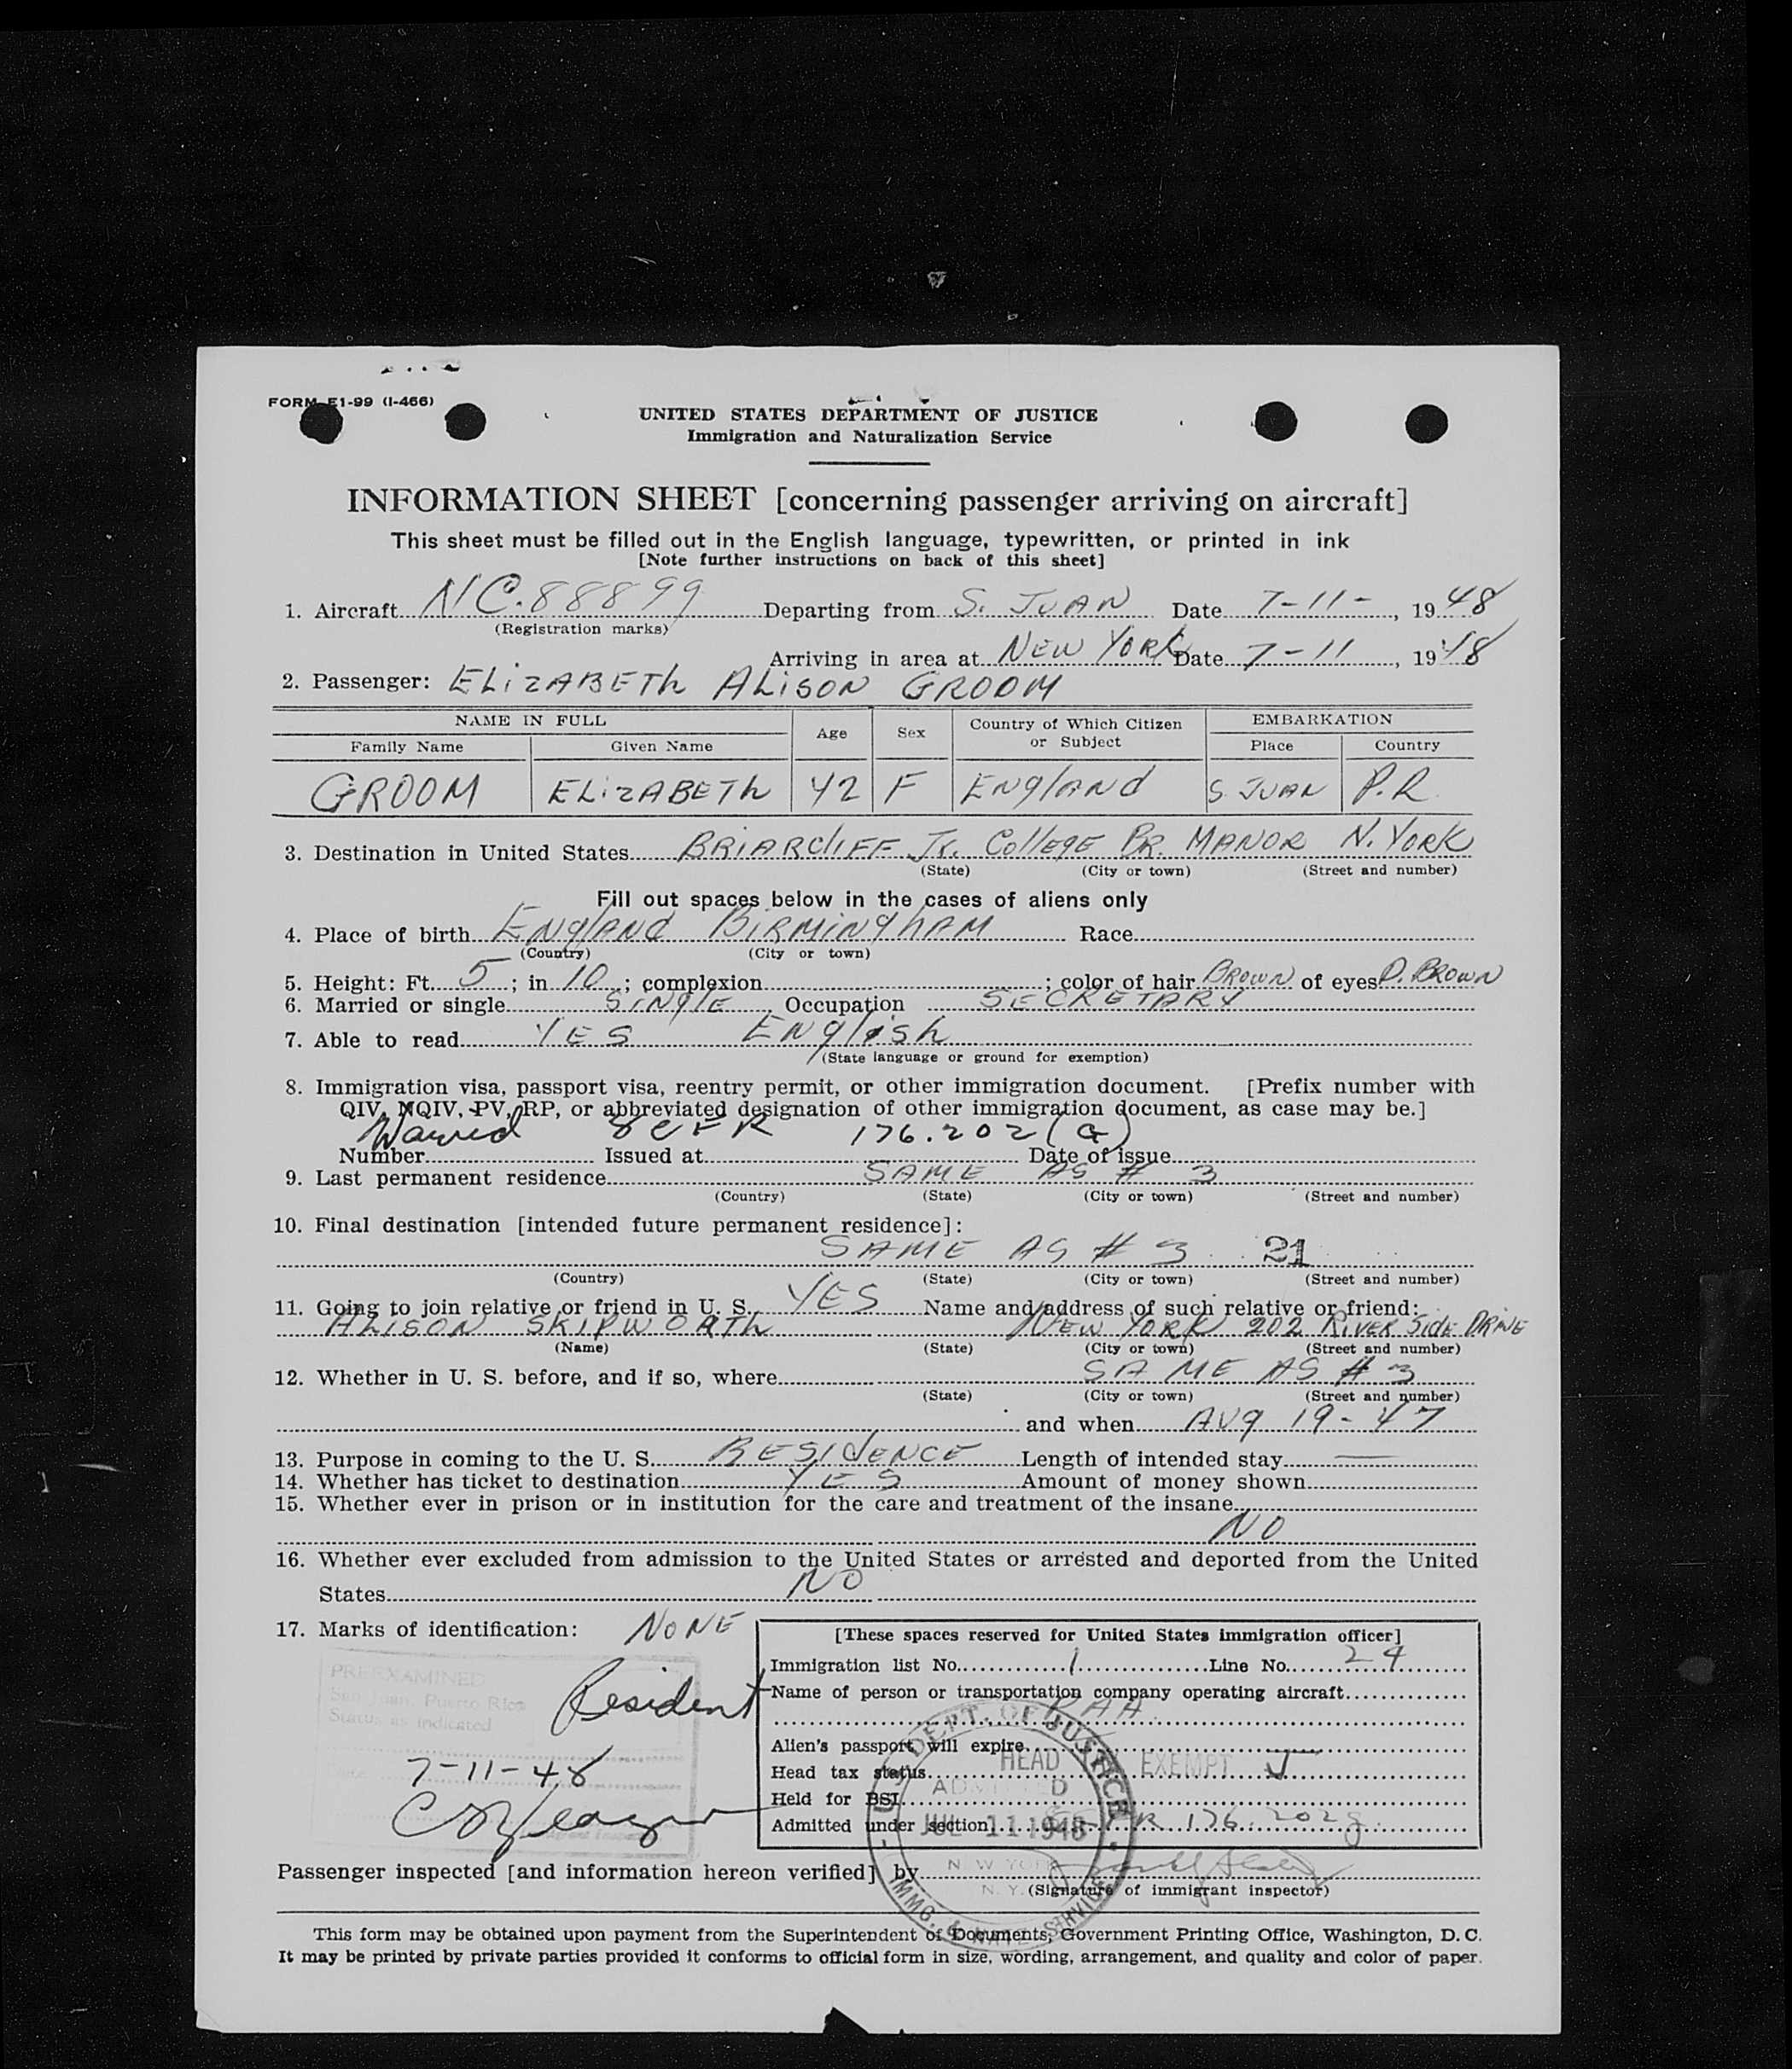 FORM E1-99 (I-466)
UNITED STATES DEPARTMENT OF JUSTICE
Immigration and Naturalization Service
INFORMATION SHEET [concerning passenger arriving on aircraft]
This sheet must be filled out in the English language, typewritten, or printed in ink
[Note further instructions on back of this sheet]
1. Aircraft NC.88899 Departing from S. JUAN Date 7-11-, 1948
(Registration marks)
Arriving in area at NEW YORK Date 7-11, 1948
2. Passenger: ELiZABETh ALiSON GROOM
NAME IN FULL Age Sex Country of Which Citizen or Subject EMBARKATION
Family Name Given Name Place Country
GROOM ELiZABETh 42 F ENglANd S. JUAN P.R.
3. Destination in United States BRiARcliFF Jr. CollEgE BR. MANOR N. YORK
(State) (City or town) (Street and number)
Fill out spaces below in the cases of aliens only
4. Place of birth ENglANd BiRMiNghAM Race
(Country) (City or town)
5. Height: Ft. 5; in 10; complexion; color of hair BROWN of eyes D. BROWN
6. Married or single SiNglE Occupation SECRETARY
7. Able to read YES ENglish
(State language or ground for exemption)
8. Immigration visa, passport visa, reentry permit, or other immigration document. [Prefix number with
QIV, NQIV, PV, RP, or abbreviated designation of other immigration document, as case may be.]
Waived 8 CFR 176.202(G)
Number Issued at Date of issue
9. Last permanent residence SAME AS # 3
(Country) (State) (City or town) (Street and number)
10. Final destination [intended future permanent residece]:
SAME AS # 3 21
(Country) (State) (City or town) (Street and number)
11. Going to join relative or friend in U. S. YES Name and address of such relative or friend:
ALiSON SKiPWORTh NEW YORK 202 RiVER SidE DRiVE
(Name) (State) (City or town) (Street and number)
12. Whether in U. S. before, and if so, where SAME AS # 3
(State) (City or town) (Street and number)
and when AUg 19-47
13. Purpose in coming to the U. S. RESidENCE Length of intended stay —
14. Whether has ticket to destination YES Amount of money shown
15. Whether ever in prison or in institution for the care and treatment of the insane
NO
16. Whether ever excluded from admission to the United States or arrested and deported from the United
States NO
17. Marks of identification: NONE
[These spaces reserved for United States immigration officer]
Immigration list No. 1 Line No. 24
PREEXAMINED
San Juan, Puerto Rico
Status as indicated
Resident
Name of person or transportation company operating aircraft
PAA
Alien's passport will expire
7-11-48
Head tax status HEAD EXEMPT
Held for BSI
Admitted under section CFR 176.202g
U.S. DEPT. OF JUSTICE
ADMITTED
JUL 11 1948
NEW YORK
N. Y.
IMMG. & NATZ. SERVICE
Passenger inspected [and information hereon verified] by
(Signature of immigrant inspector)
This form may be obtained upon payment from the Superintendent of Documents, Government Printing Office, Washington, D. C.
It may be printed by private parties provided it conforms to official form in size, wording, arrangement, and quality and color of paper.